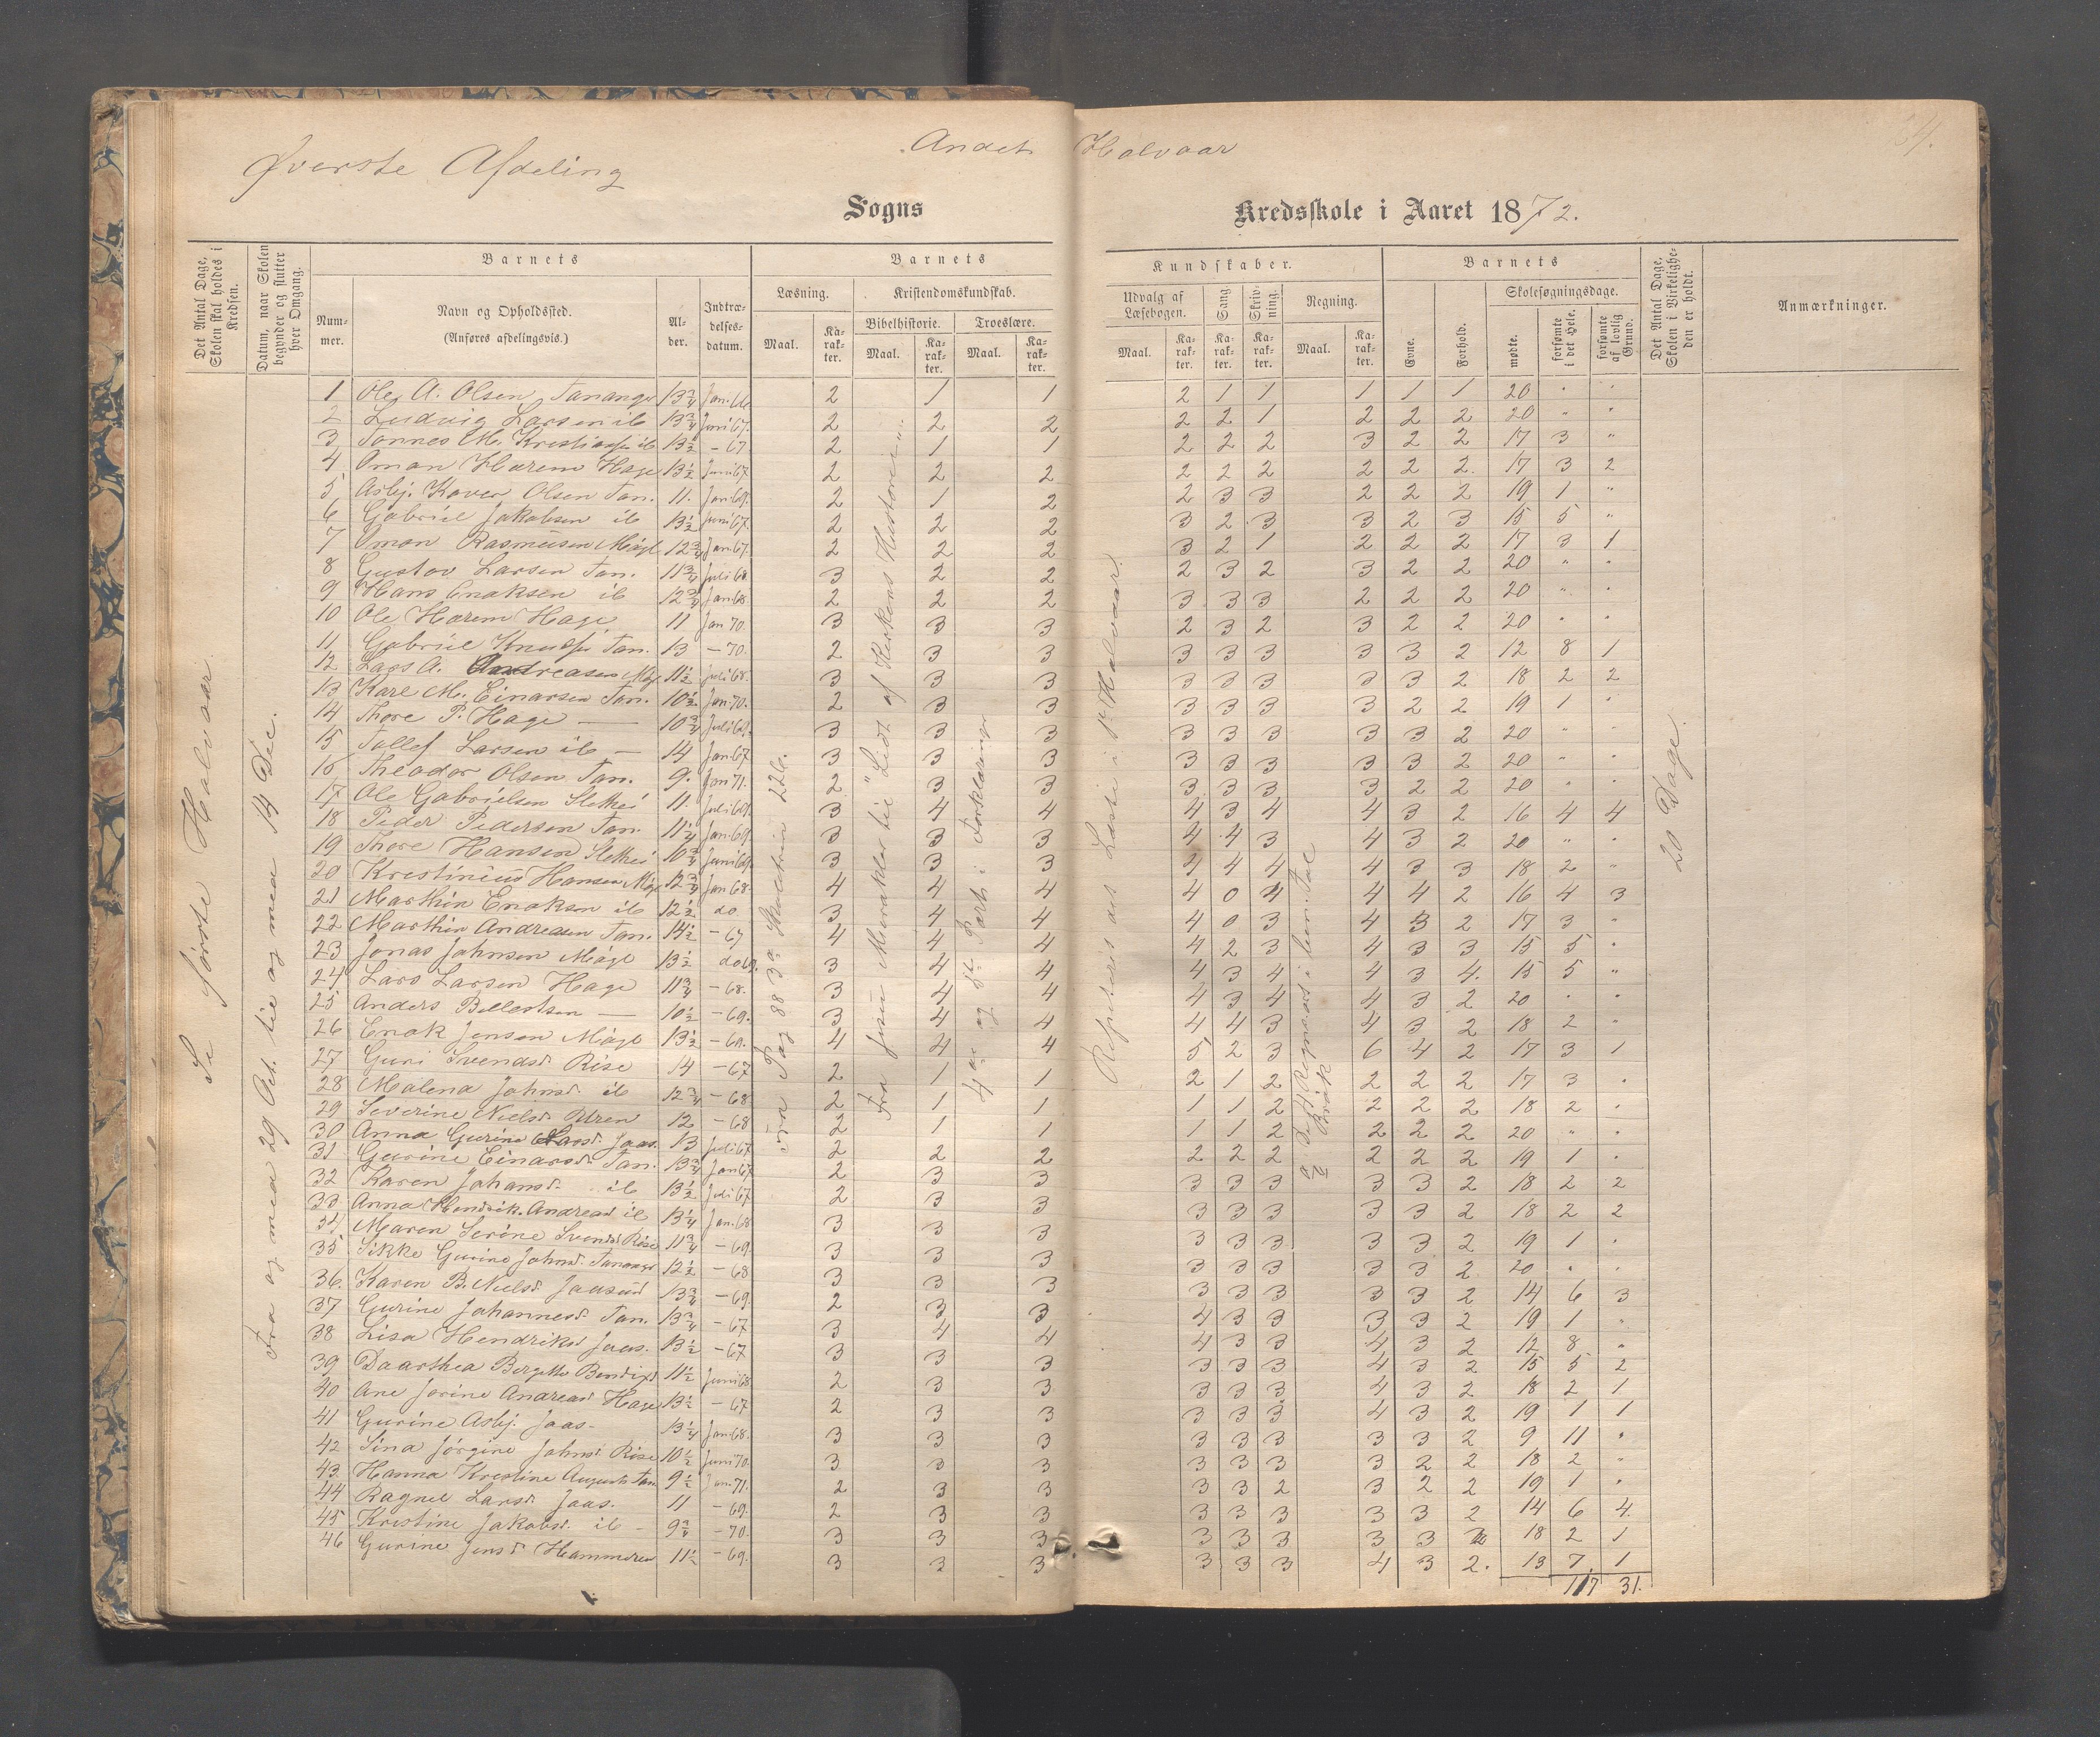 Øverste Afdeling
Andet Halvaar
Sogns Kredsskole i Aaret 1872.
Det Antal Dage, Skolen skal holdes i Kredsen.
Datum, naar Skolen begynder og slutter hver Omgang.
Barnets
Num-mer.
Navn og Opholdssted.
(Anføres afdelingsvis.)
Al-der.
Indtræ-delses-datum.
Barnets
Læsning.
Maal.
Ka-rak-ter.
Kristendomskundskab.
Bibelhistorie.
Maal.
Ka-rak-ter.
Troeslære.
Maal.
Ka-rak-ter.
Kundskaber.
Udvalg af Læsebogen.
Maal.
Ka-rak-ter.
Sang.
Ka-rak-ter.
Skriv-ning.
Ka-rak-ter.
Regning.
Maal.
Ka-rak-ter.
Barnets
Evne.
Forhold.
Skolesøgningsdage.
mødte.
forsømte i det Hele.
forsømte af lovlig Grund.
Det Antal Dage, Skolen i Virkelighe-den er holdt.
Anmærkninger.
Se første Halvaar.
Fra og med 29 Oct. til og med 14 Dec.
Fra Pag 88
Fra Jesu Mirakler til "Lidt af Kirkens Historie".
4de og 5te Part i Forklaringen
Repeteres det Læste i 1ste Halvaar.
20 Dage.
1 Ole A. Olsen Tananger 13 3/4 Jan. 66 2 1 1 2 1 1 1 1 1 20 " "
2 Ludvig Larsen ib 13 3/4 Juni 67. 2 2 2 2 2 1 2 2 2 20 " "
3 Tønnes M. ib 13 1/2 - 67 2 1 1 2 2 2 3 2 2 17 3 "
4 Oman Harem Hage 13 1/2 Juni 67 2 2 2 2 2 2 2 2 2. 17 3 2
5 Asbj. Kaver Olsen Tan. 11. Jan. 69. 2 1 2 2 3 3 2 2 2 19 1 "
6 Gabriel Jakobsen ib 13 1/2 Juni 67. 2 2 2 3 2 3 3 2 3 15 5 "
7 Oman Rasmussen 12 3/4 Jan. 67. 2 2 2 3 2 1 2 2 2 17 3 1
8 Gustav Larsen Tan. 11 3/4 Juli 68 3 2 2 2 3 2 3 2 2 20 " "
9 Hans Enoksen ib 12 3/4 Jan. 68 2 2 2 3 3 3 2 2 2 20 " "
10 Ole Harem Hage 11 Jan 70. 3 3 3 2 3 2 3 2 2 20 " "
11 Gabriel Tan. 13 - 70. 2 3 3 3 3 3 3 3 2 12 8 1
12 Lars A. Andreasen 11 1/2 Juli 68. 3 3 3 3 3 3 3 3 2 18 2 2
13 Karl M. Einarsen Tan. 10 1/2 Jan. 70. 2 3 3 3 3 3 3 2 2 19 1 "
14 Thore P. Hage — 10 3/4 Juli 69. 3 3 3 3 3 3 3 3 2 20 " "
15 Tollef Larsen ib — 14 Jan. 67 3 3 3 3 3 3 3 3 2 20 " "
16 Theodor Olsen Tan. 9. Jan 71. 2 3 3 3 3 3 3 2 2 20 " "
17 Ole Gabrielsen 11. Juli 69. 3 4 4 4 3 4 4 3 2 16 4 4
18 Peder Pedersen Tan. 11 1/4 Jan. 69 3 3 3 4 4 3 4 3 2 20 " "
19 Thore Hansen 10 3/4 Juni 69 3 3 3 4 4 4 4 3 3 18 2 "
20 Kristinius Hansen 12 3/4 Jan 68 4 4 4 4 0 4 4 4 2 16 4 3
21 Marthin Enoksen ib 12 1/2 do. 3 4 4 4 0 3 4 3 2 17 3 "
22 Marthin Andreasen Tan. 14 1/2 - 67 4 4 4 4 2 3 4 3 3 15 5 "
23 Jonas Johnsen 13 1/2 3 4 4 4 3 4 4 3 4. 15 5 "
24 Lars Larsen Hage 11 3/4 - 68. 3 4 4 4 3 4 4 3 2 20 " "
25 Anders — 10 1/2 - 69. 3 4 4 4 4 3 4 3 2 18 2 "
26 Enok Jensen 13 1/2 4 4 4 5 2 3 6 4 2 17 3 1
27 Guri Svendsd. Risе 14 - 67 2 1 1 2 1 2 2 2 2 17 3 "
28 Malena Johnsd. ib 12 3/4 - 68 2 1 1 1 1 2 2 2 2 18 2 "
29 Severine Nielsd. 12 - 68 2 1 1 1 1 2 2 2 2 20 " "
30 Anna Gurine Jaas. 13 Juli 67 2 2 2 2 2 2 2 2 2 19 1 "
31 Gurine Einarsd. Tan. 13 3/4 Jan 67 2 3 3 3 3 3 3 3 2 18 2 2
32 Karen Johansd. ib 13 1/2 Juli 67 2 3 3 3 3 3 3 3 2 18 2 2
33 Anna Hendrik. Andreasd ib 13 1/4 Jan. 68 3 3 3 3 3 3 3 3 2 19 1 "
34 Maren Serine Svendsd Rise 11 3/4 - 69. 3 3 3 3 3 3 3 3 2 20 " "
35 Sikke Gurine Johnsd. Tananger 12 1/2 - 68 3 3 3 3 3 3 3 3 2 14 6 3
36. Karen B. Nielsd. Jaasund 13 3/4 - 69. 2 3 3 4 3 3 3 3 2 19 1 "
37 Gurine Johannesd. Tan. 13 3/4 - 67 3 4 4 4 3 3 4 3 2 12 8 "
38 Lisa Hendriksd Jaas. 13 1/2 - 67 3 3 3 3 3 3 4 3 2 15 5 2
39 Daarthea Bergitte 11 1/2 Juni 68 2 3 3 3 3 3 4 3 2 18 2 1
40 Ane Jorine Andreasd. Hage 13 1/2 - 67 2 3 3 3 3 3 4 3 2 19 1 1
41 Gurine Asbj. Jaas. 13 1/4 Jan 68. 3 3 3 3 3 3 3 3 2 9 11 "
42 Sina Jørgine Johnsd Rise 10 1/2 Juni 70. 3 3 3 3 3 3 3 2 2 18 2 "
43. Hanna Kristine Tan 9 1/2 Jan. 71. 2 3 3 3 3 2 3 2 2 19 1 "
44 Ragnel Larsd. Jaas. 11 - 69. 2 3 3 3 3 3 3 3 2 14 6 4.
45 Kristine Jakobsd. ib - 9 3/4 - 70. 3 3 3 3 3 3 3 3 2 18 2 1
46 Gurine Jensd Hammeren 11 1/2 - 69. 3 3 3 3 3 3 4 3 2. 13 7 1
117 31.